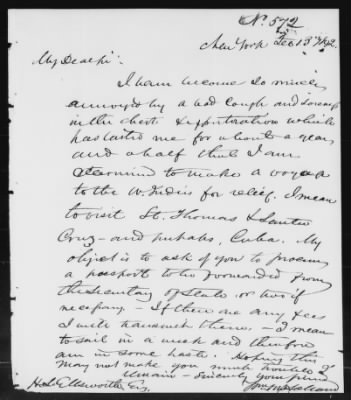 No. 572
New York Feb 13th 1842.
My Dear Sir:
I have become so much
annoyed by a bad cough and soreness
in the chest & expectoration which
has lasted me for about a year
and a half that I am
determined to make a voyage
to the W. Indies for relief. I mean
to visit St. Thomas & Santa
Cruz - and perhaps, Cuba. My
object is to ask of you to procure
a passport to be forwarded from
the Secretary of State or two if
necessary - If there are any fees
I will transmit them. - I mean
to sail in a week and therefore
am in some haste. Hoping this
may not make you much trouble I
Remain - Sincerely your friend
H. L. Ellsworth Esq.